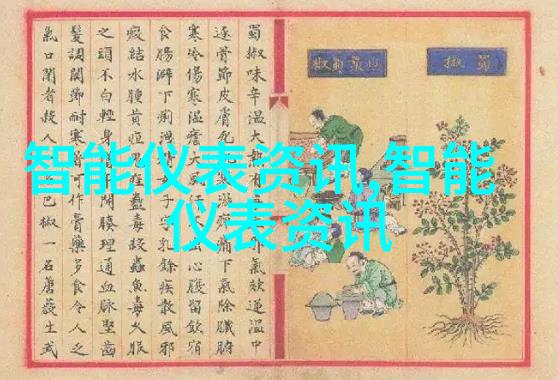 智能仪表资讯,智能
仪表资讯
蜀椒
蜀椒味辛溫大熱有外氣欬逆溫中
逐骨節皮膚死痛下氣除臟腑
寒冷傷寒溫瘧大風心腹留飲宿
食腸澼下痢洩女子字乳餘疾散風邪
瘕結水腫黃疸鬼疰蠱毒殺蟲魚毒久服
之頭不白輕身腠理通血脉堅齒
髮調關節耐寒可作膏藥多食令人乏
氣口閉者殺人巴椒一名蓎藙生武